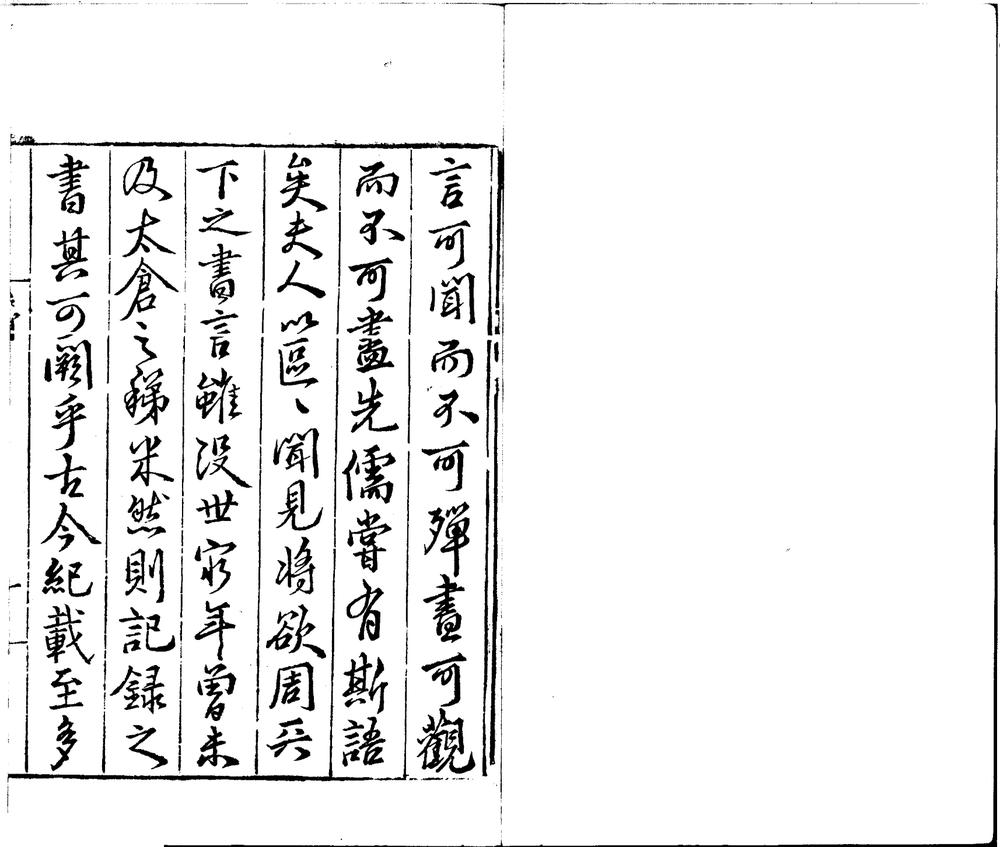 言可聞而不可殫書可觀
而不可盡先儒嘗有斯語
矣夫人以區〻聞見將欲周天
下之書言雖没世窮年曾未
及太倉之稊米然則記録之
書其可闕乎古今紀載至多